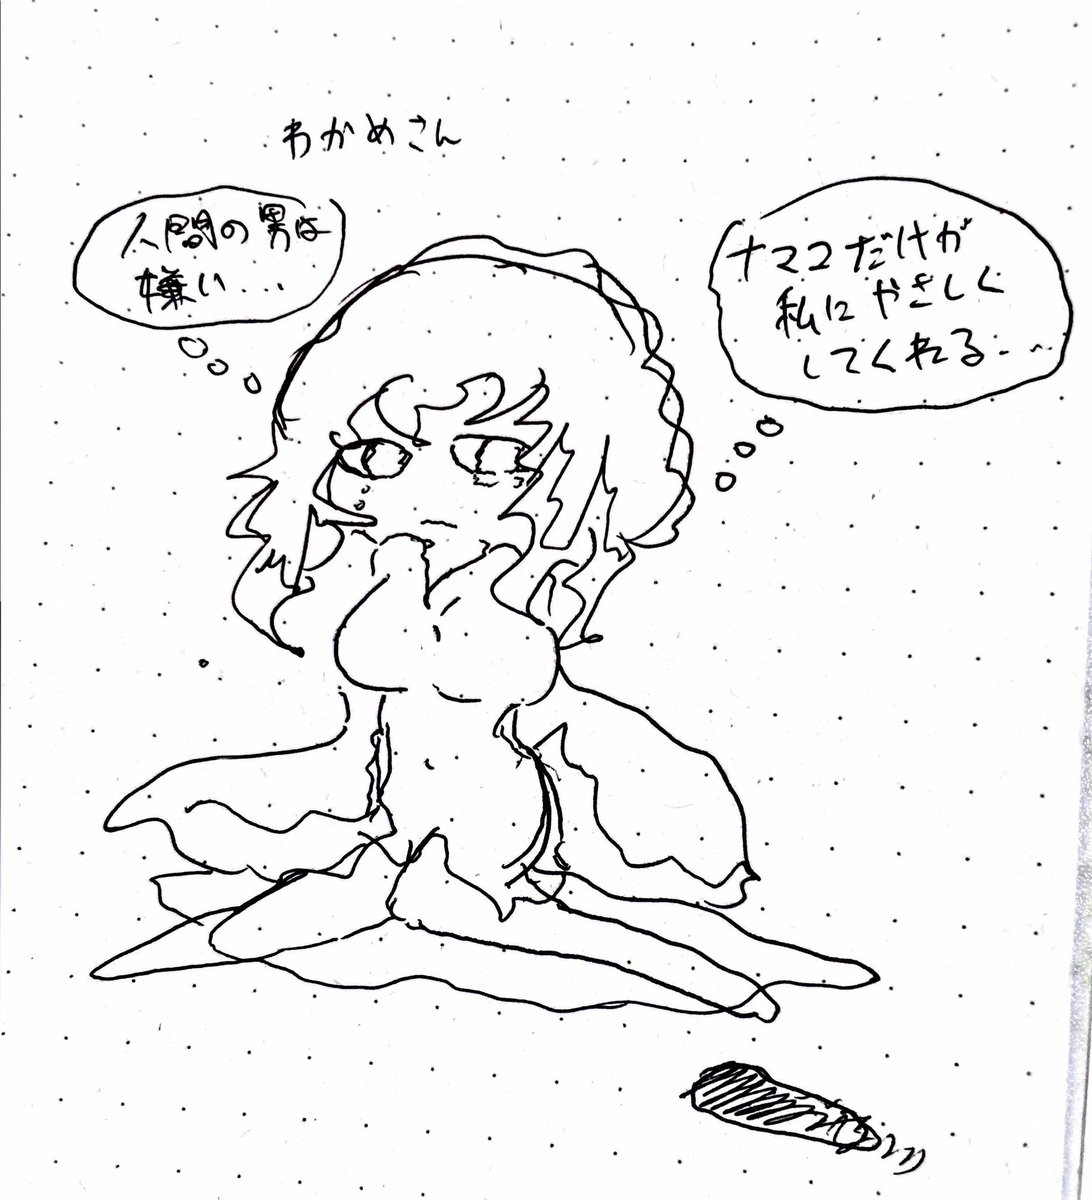 わかめさん
人間の男は
嫌い...
ナマコだけが
私にやさしく
してくれる...